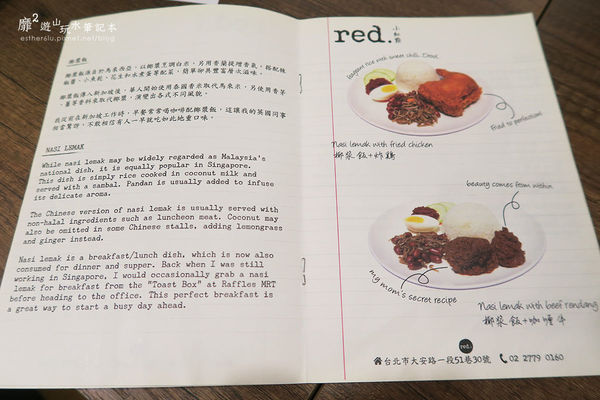 靡²遊山玩水筆記本
esther8lu.pixnet.net/blog
椰漿飯
NASI LEMAK
While nasi lemak may be widely regarded as Malaysia's
national dish, it is equally popular in Singapore.
This dish is simply rice cooked in coconut milk and
served with a sambal. Pandan is usually added to infuse
its delicate aroma.
The Chinese version of nasi lemak is usually served with
non-halal ingredients such as luncheon meat. Coconut may
also be omitted in some Chinese stalls, adding lemongrass
and ginger instead.
Nasi lemak is a breakfast/lunch dish, which is now also
consumed for dinner and supper. Back when I was still
working in Singapore, I would occasionally grab a nasi
lemak for breakfast from the "Toast Box" at Raffles MRT
before heading to the office. This perfect breakfast is
a great way to start a busy day ahead.
red.
小紅點
fragrant rice with sweet chilli. Divine.
Fried to perfection!
Nasi lemak with fried chicken
椰漿飯+炸鷄
beauty comes from within
my mom's secret recipe
Nasi lemak with beef rendang
椰漿飯+咖喱牛
red.
台北市大安路一段51巷30號 02 2779 0160